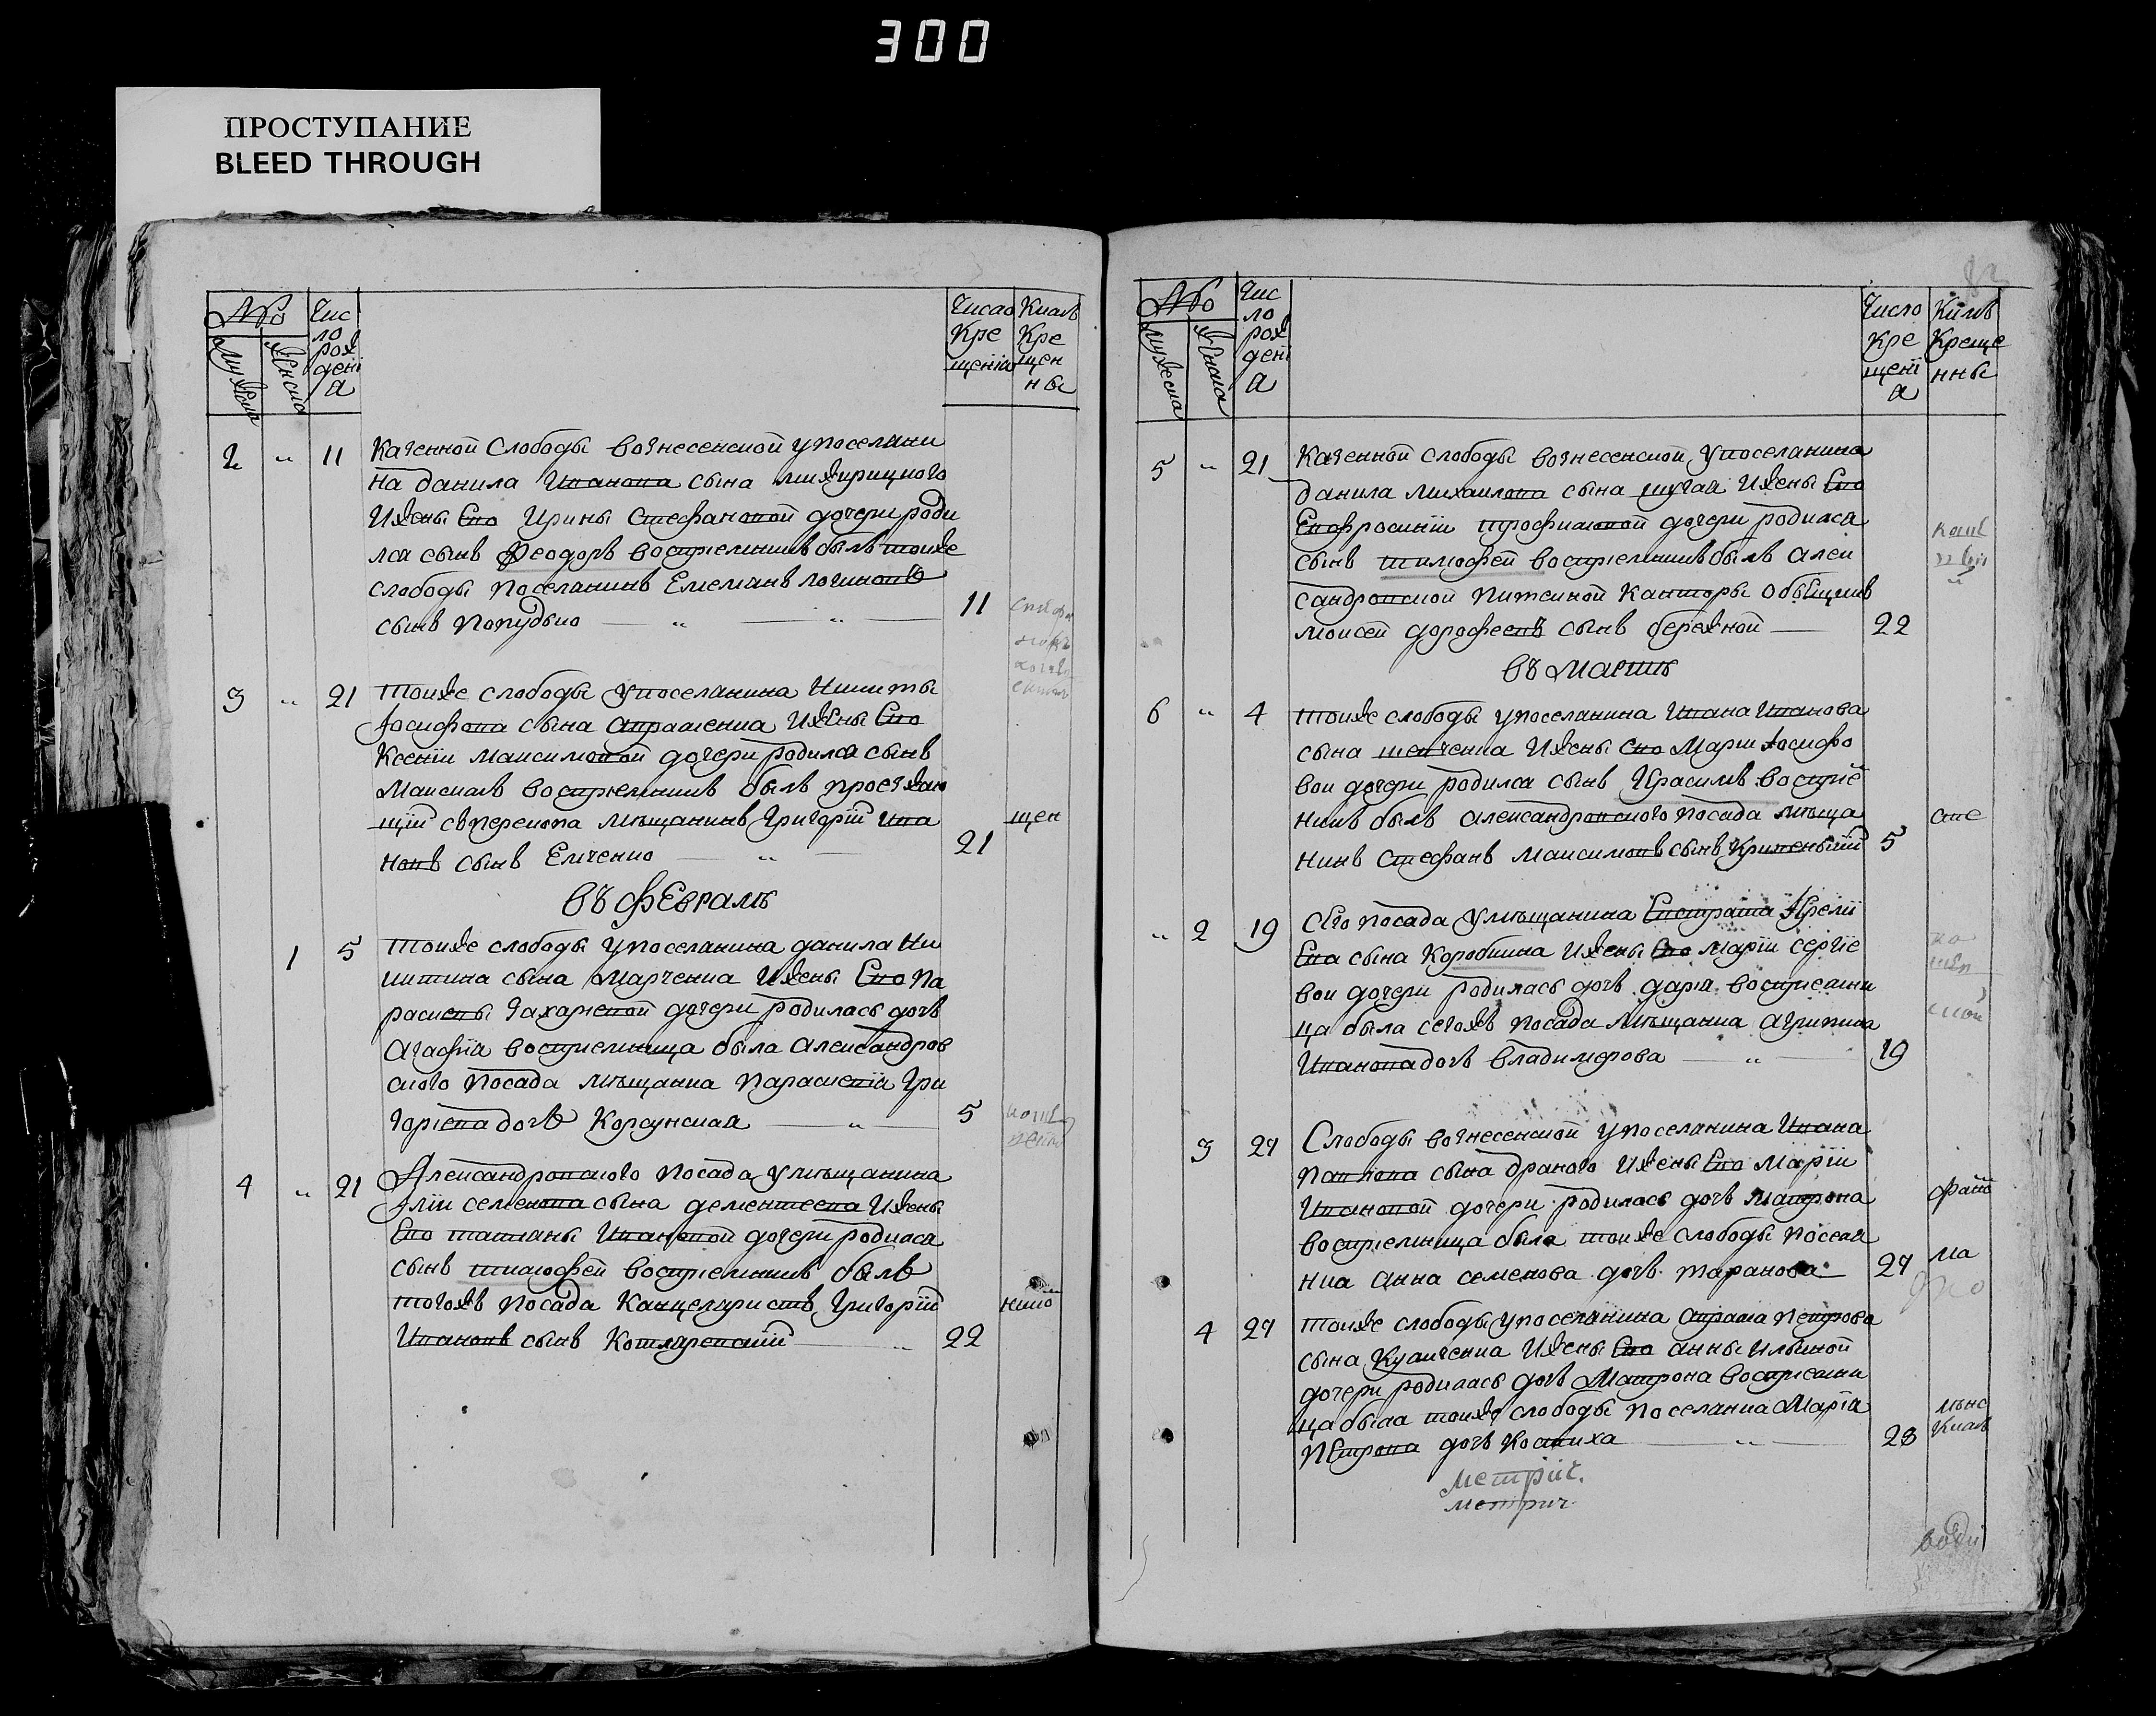 300
ПРОСТУПАНИЕ
BLEED THROUGH
№
Чис
ло
рож
дені
я
Число
кре
щенія
Кѣмъ
кре
щен
ны
мужеска
женска
2 " 11 Казенной слободы вознесенской упоселяни
на данила Иванова сына
Ижены Его Ирины Стефановой дочери роди
лся сынъ Феодоръ воспріемникъ былъ тоиже
слободы поселянинъ Емеліанъ логиновъ
сынъ Попудько 11
3 " 21 тоиже слободы упоселянина Никиты
Іосифова сына Авраменка Ижены Его
Ксеніи Максимовой дочери родился сынъ
Максимъ воспріемникъ былъ проезжаю
щій сперекопа мѣщанинъ Григорій Ива
новъ сынъ Емченко 21
щен
въ февралѣ
1 5 тоиже слободы упоселянина данила Ни
китина сына Марченка Ижены Его Па
раскевы Захаріевой дочери родилась дочь
Агафія воспріемница была Александров
скаго посада мѣщанка Параскевія Гри
горіева дочь Корсунская 5
4 " 21 Александровского посада умѣщанина
Іліи семенова сына дементеева Ижены
Его татіаны Ивановой дочери родился
сынъ тимофей воспріемникъ былъ
тогожъ посада Канцеляристъ Григорій
Ивановъ сынъ Котляревскій 22
№
Чис
ло
рож
дені
я
Число
кре
щені
я
Кѣмъ
креще
нны
мужеска
женска
5 " 21 Казенной слободы вознесенской упоселянина
данила михаилова сына шугая Ижены Его
Евфросиніи трофимовой дочери родился
сынъ тимофей воспріемникъ былъ алек
сандровской питейной канторы объѣщикъ
моисей дорофеевъ сынъ бережной 22
въ мартѣ
6 " 4 тоиже слободы упоселянина Ивана Иванова
сына шевченка Ижены Его Маріи Іосифо
вои дочери родился сынъ Герасимъ воспріе
никъ былъ александровского посада мѣща
нинъ Стефанъ Максимовъ сынъ 5
" 2 19 Сего посада умѣщанина Евстратія
Ева сына Коробкина Ижены Его Маріи сергіе
вои дочери родилась дочь дарія воспріемни
ца была сегожъ посада мѣщанка агрипина
Иванова дочь владимерова 19
3 27 Слободы вознесенской упоселянина Ивана
павлова сына драного Ижены Его Маріи
Ивановой дочери родилась дочь матрона
воспріемница была тоиже слободы посела
нка анна семенова дочь таранова 27
4 27 тоиже слободы упоселянина Аврама Петрова
сына Кравченка Ижены Его анны Ильиной
дочери родилась дочь Матрона воспріемни
ца была тоиже слободы поселянка Марія
Петрова дочь Костиха 28
метрич.
метрич.